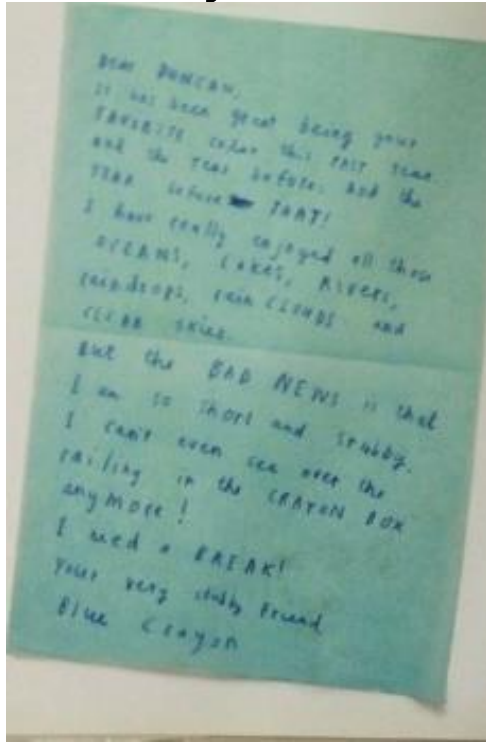 DEAR DUNCAN,
It has been great being your
FAVORITE color this PAST year.
And the year before. And the
YEAR before THAT!
I have really enjoyed all those
OCEANS, LAKES, RIVERS,
rAINdrops, rain CLOUDS and
CLEAR skies.
But the BAD NEWS is that
I am so short and stubby,
I can't even see over the
railing in the CRAYON BOX
anymore!
I need a BREAK!
Your very stubby friend,
Blue Crayon